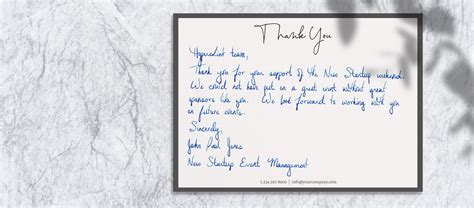 Thank You
Hyperdint team,
Thank you for your support of the New Startup weekend.
We could not have put on a great event without great
sponsors like you. We look forward to working with you
in future events.
Sincerely,
John Paul Jones
New Startup Event Management
1.234.567.8000 | info@yourcompany.com